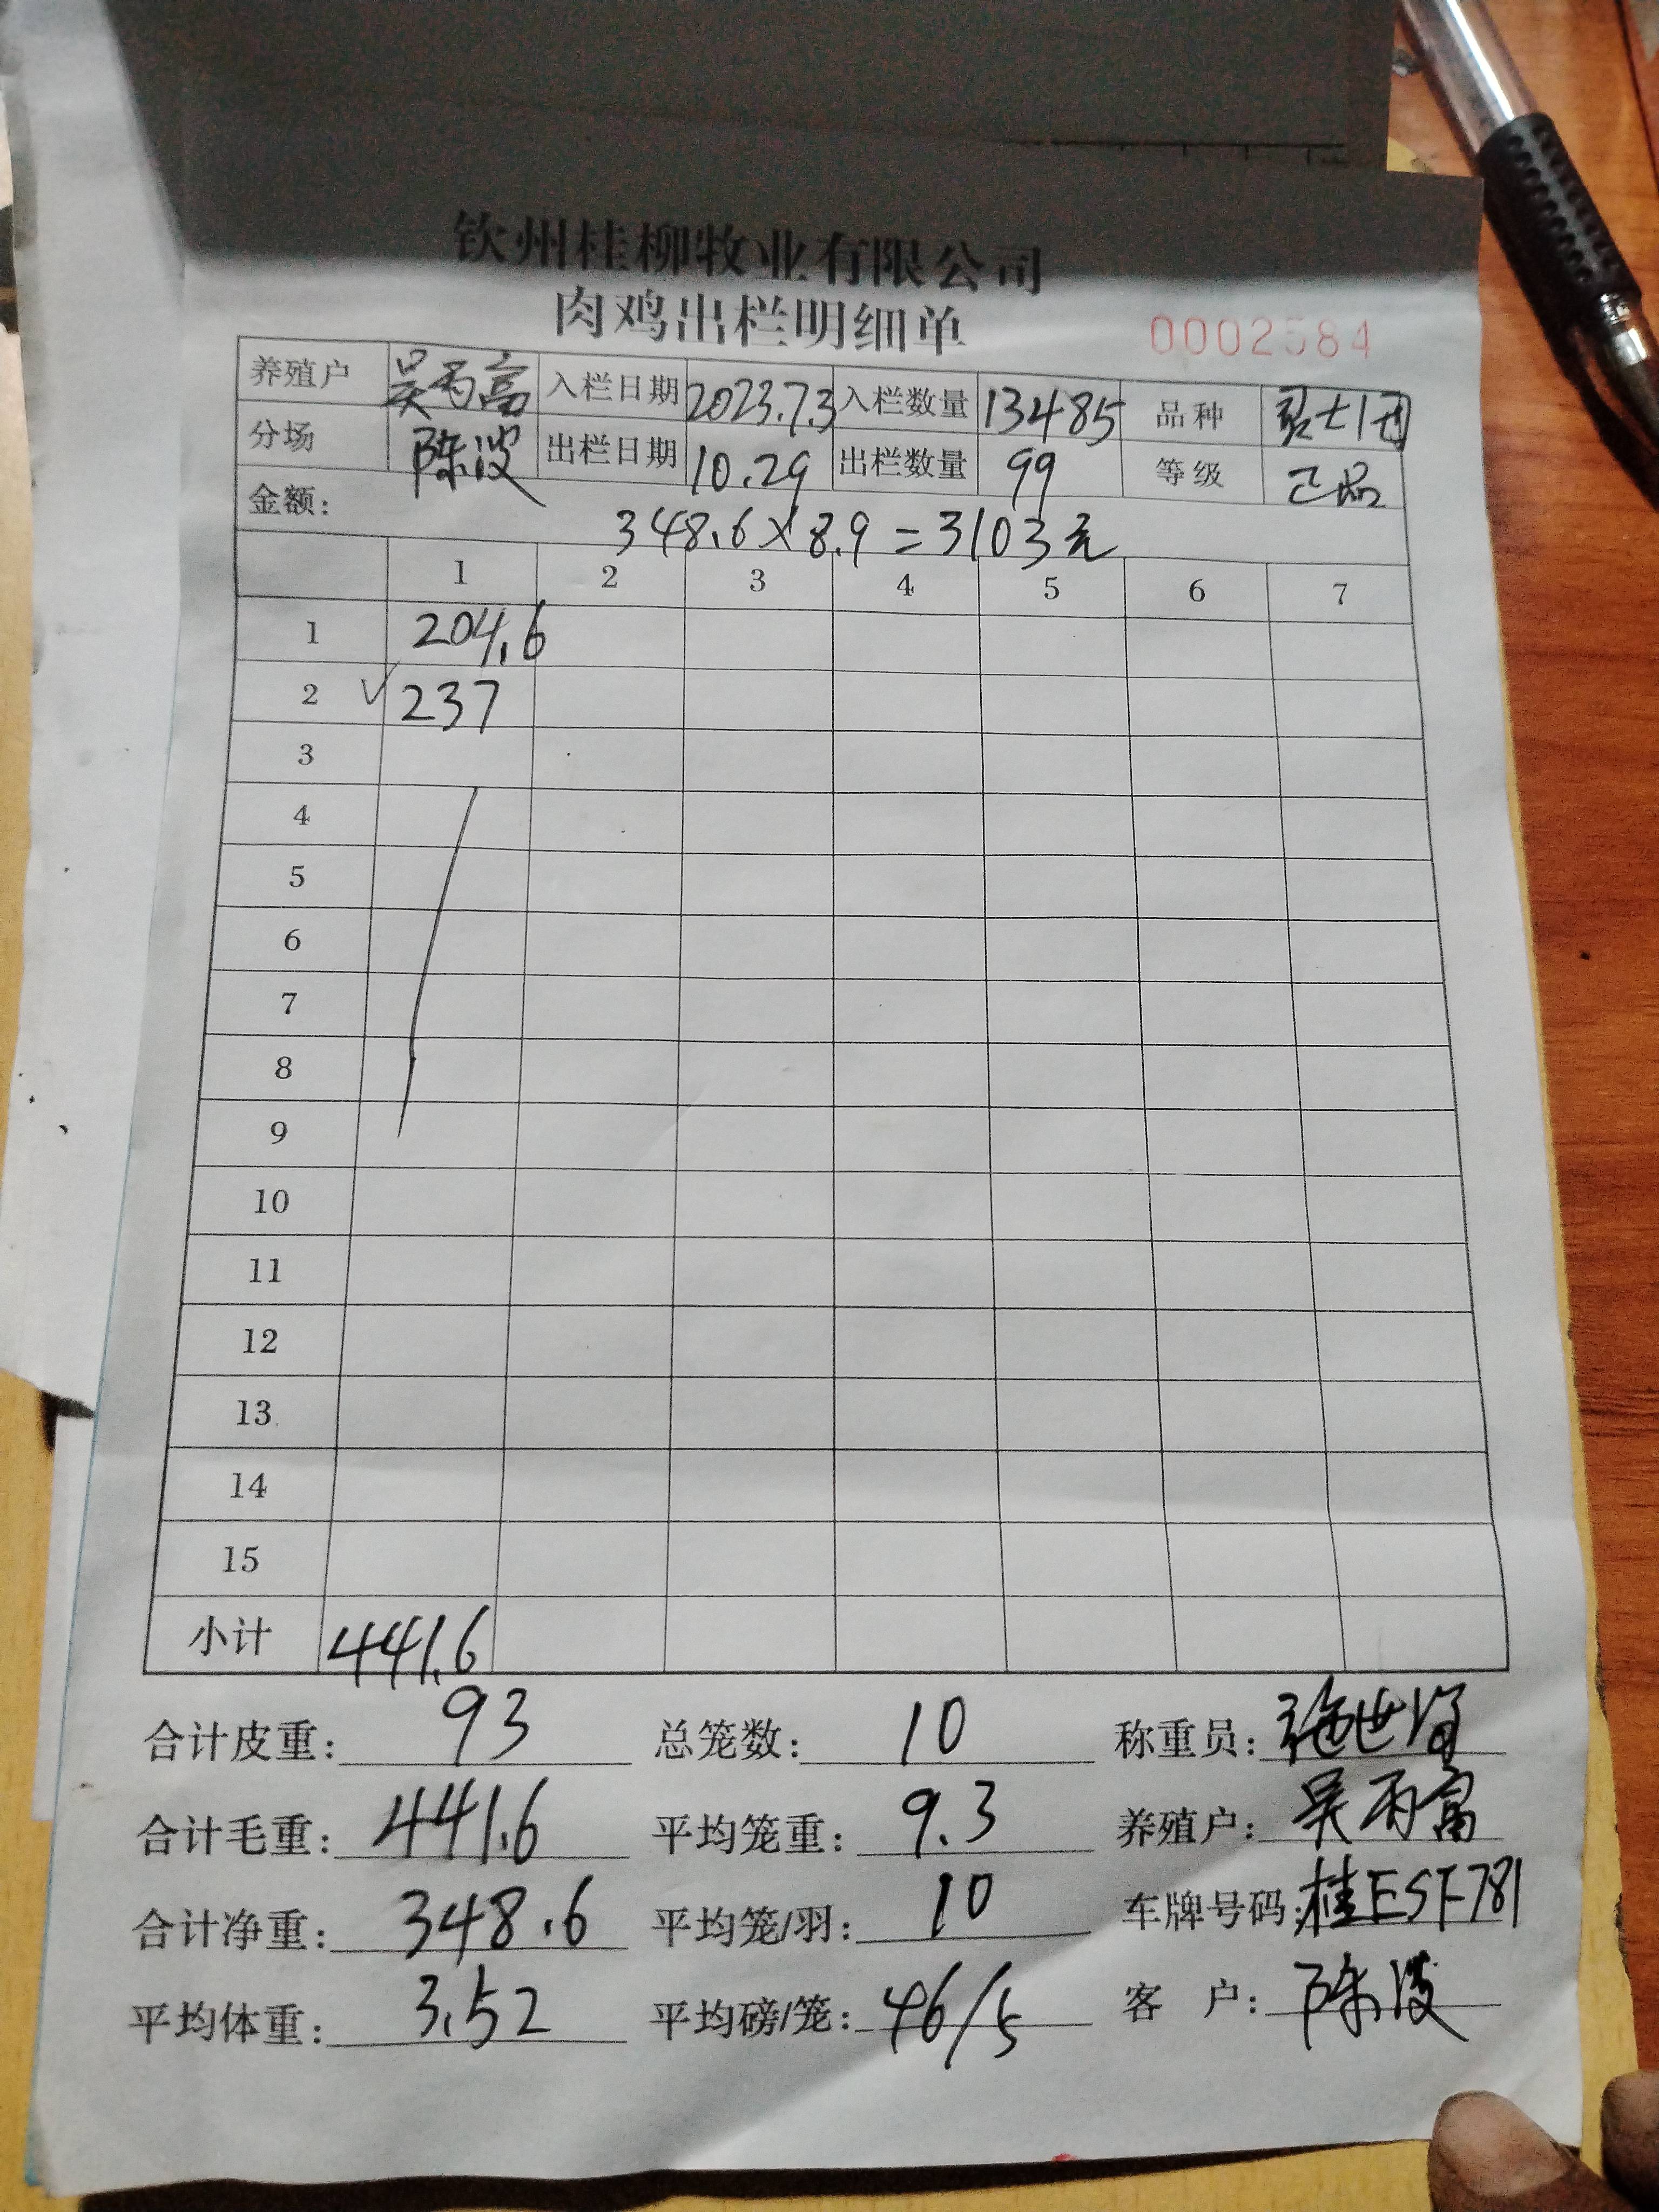 钦州桂柳牧业有限公司
肉鸡出栏明细单 0002584
养殖户 吴 入栏日期 2023.7.3 入栏数量 13485 品种
分场 陈波 出栏日期 10.29 出栏数量 99 等级 正品
金额: 348.6×8.9=3103元
1 2 3 4 5 6 7
1 204.6
2 √ 237
3
4
5
6
7
8
9
10
11
12
13
14
15
小计 441.6
合计皮重: 93 总笼数: 10 称重员:
合计毛重: 441.6 平均笼重: 9.3 养殖户: 吴
合计净重: 348.6 平均笼/羽: 10 车牌号码: 桂ESF781
平均体重: 3.52 平均磅/笼: 46/5 客 户: 陈波